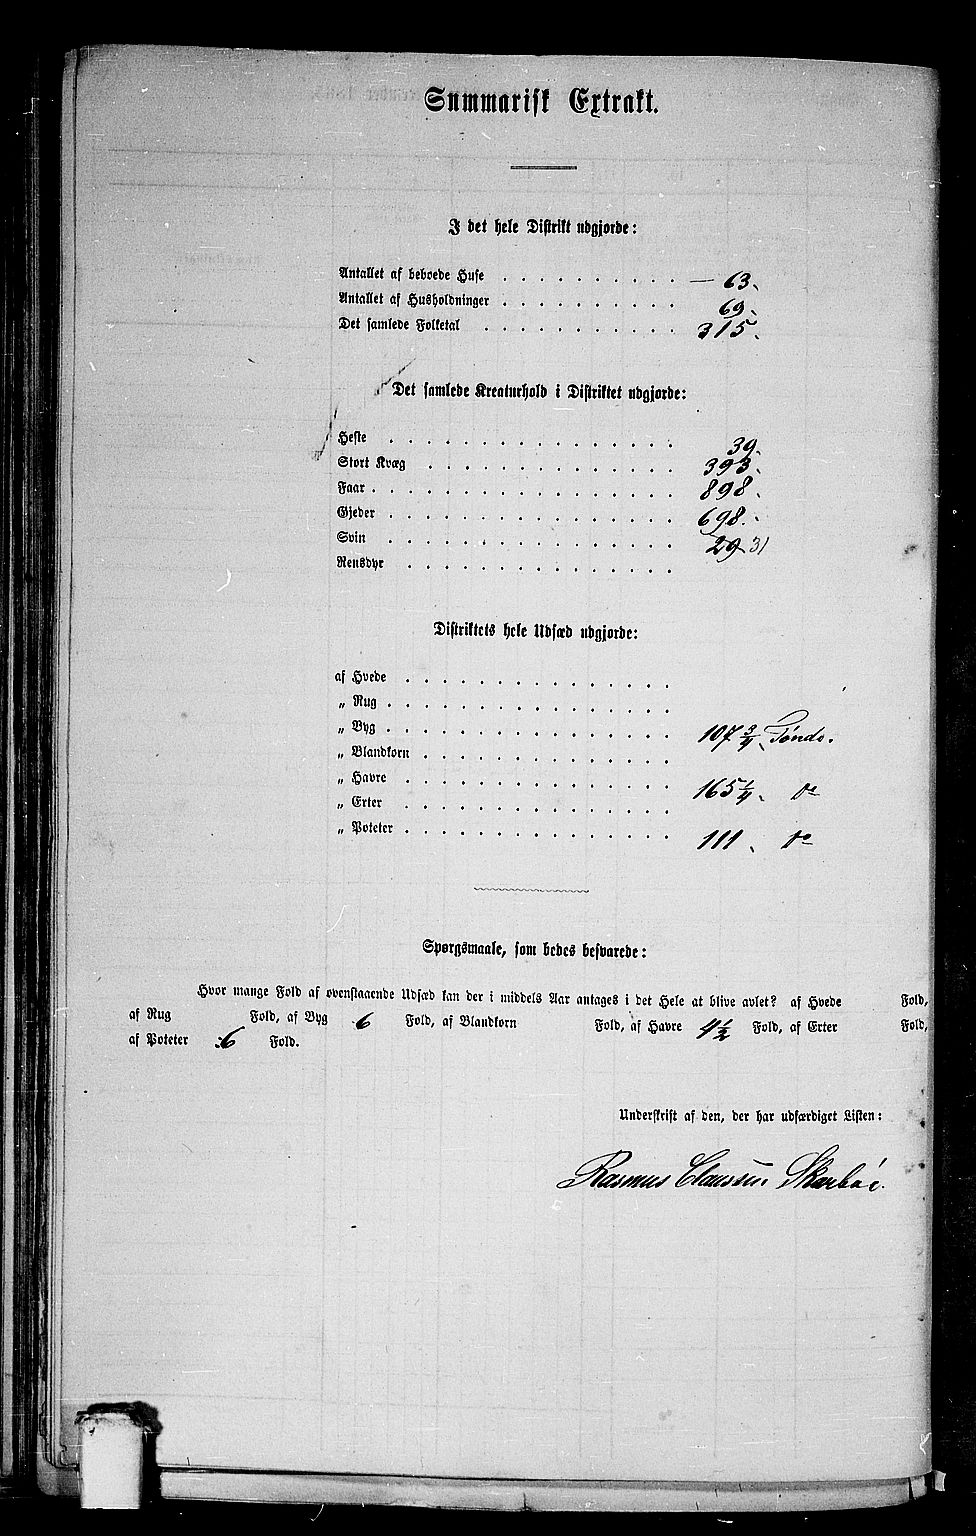 Summarisk Extrakt.
I det hele Distrikt udgjorde:
Antallet af beboede Huse . . . . . . . . . . — 63.
Antallet af Husholdninger . . . . . . . . . . 69.
Det samlede Folketal . . . . . . . . . . . 315.
Det samlede Kreaturhold i Distriktet udgjorde:
Heste . . . . . . . . . . . . . . . . 39.
Stort Kvæg . . . . . . . . . . . . . . 393.
Faar . . . . . . . . . . . . . . . . . 898.
Gjeder . . . . . . . . . . . . . . . . 698.
Svin . . . . . . . . . . . . . . . . . 29 31
Rensdyr . . . . . . . . . . . . . . .
Distriktets hele Udsæd udgjorde:
af Hvede . . . . . . . . . . . . . . .
„ Rug . . . . . . . . . . . . . . . .
„ Byg . . . . . . . . . . . . . . . . 107 3/4 Tønde.
„ Blandkorn . . . . . . . . . . . . . .
„ Havre . . . . . . . . . . . . . . . 165 1/4. do
„ Erter . . . . . . . . . . . . . . .
„ Poteter . . . . . . . . . . . . . . . 111. do
Spørgsmaale, som bedes besvarede:
Hvor mange Fold af ovenstaaende Udsæd kan der i middels Aar antages i det Hele at blive avlet? af Hvede Fold,
af Rug Fold, af Byg 6 Fold, af Blandkorn Fold, af Havre 4 1/2 Fold, af Erter Fold,
af Poteter 6 Fold.
Underskrift af den, der har udfærdiget Listen:
Rasmus Claussen Skarbøe.